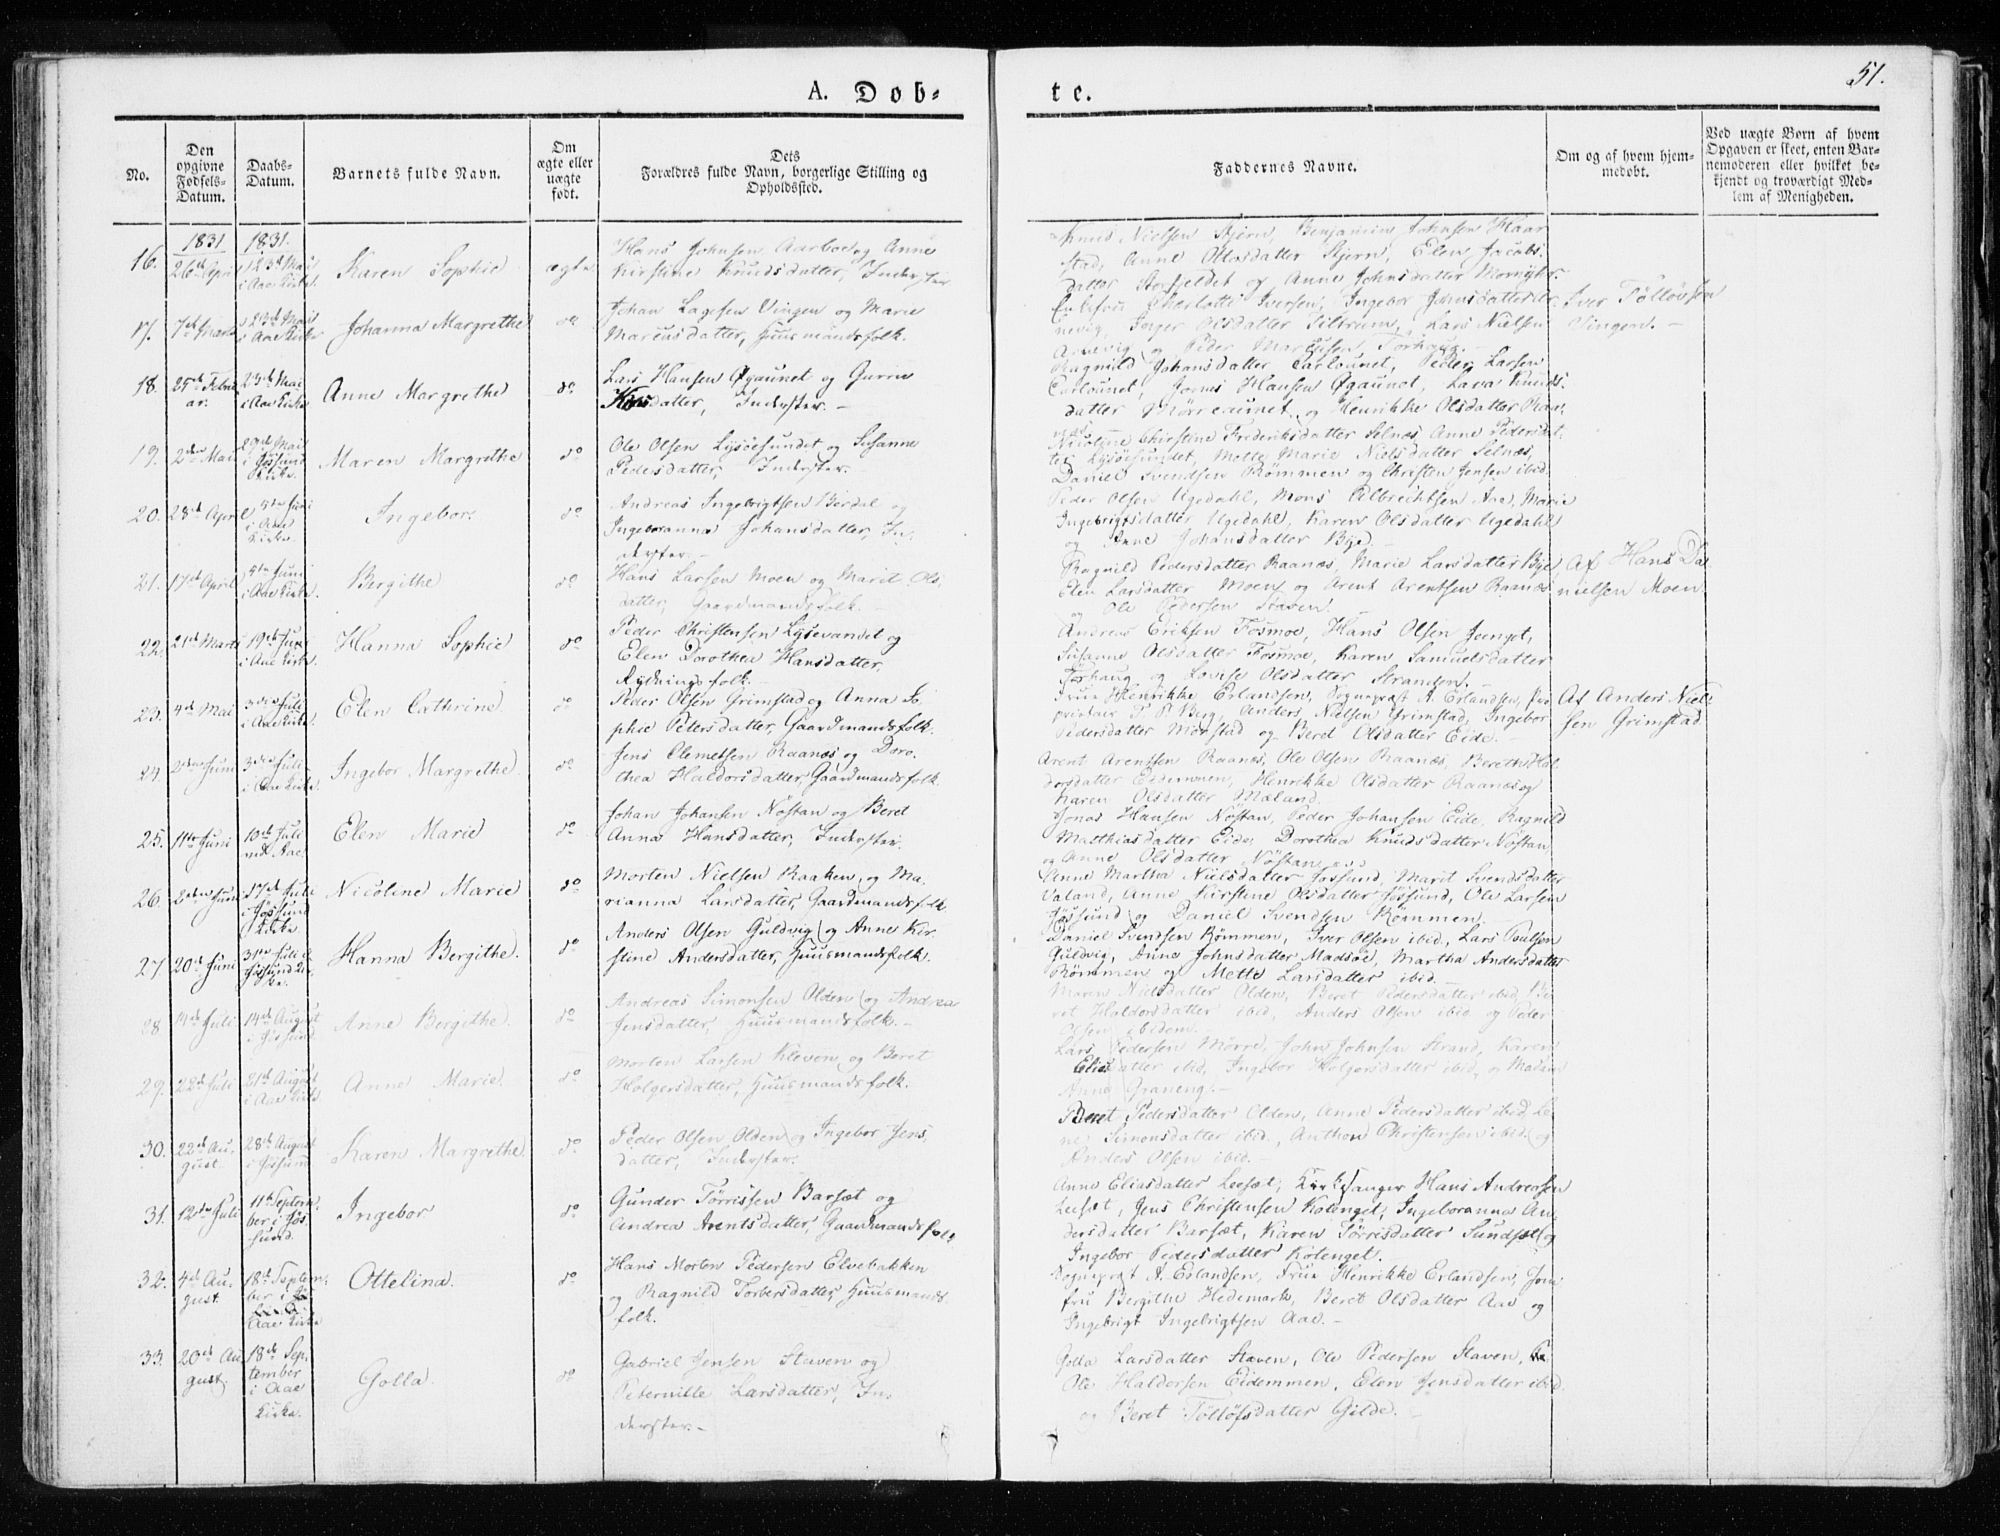 51.
A. Døb-
te.
No.
Den opgivne Fødsels-Datum.
Daabs-Datum.
Barnets fulde Navn.
Om ægte eller uægte født.
Dets
Forældres fulde Navn, borgerlige Stilling og
Opholdssted.
Faddernes Navne.
Om og af hvem hjem-
medøbt.
Ved uægte Børn af hvem
Opgaven er skeet, enten Bar-
nemoderen eller hvilket be-
kjendt og troværdigt Med-
lem af Menigheden.
1831. 1831.
16. 26de April 23de Mai i Aae Kirke. Karen Sophie ægte
Hans Johnsen Aarboe og Anne
Kirstine Knudsdatter, Inderster
Nielsen Bjørn, Benjamin Johnsen Haar
stad, Anne Ottosdatter Bjørn, Elen Jacobs
datter Storfjeldet og Anne Johnsdatter
17. 7de Marts 23de Mai i Aae Kirke Johanna Margrethe do
Johan Lagesen Vingen og Marie
Marcusdatter, Huusmandsfolk.
Charlotte Iversen, Ingebor Johnsdatter
nevig, Inger Olsdatter Lars Nielsen
Arnevig og Peder Martesen Forhaug.-
Iver Tølløvsen
Vingen.-
18. 25de Febru
ar. 23de Mai i Aae Kirke Anne Margrethe do
Lars Hansen Øgaunet og Gurru
datter, Inderster.-
Ragnild Johansdatter Carlounet, Peder Larsen
Carlounet, Jornes Hansen Øgaunet, Lava Knuds
datter Mørreaunet, og Henrikke Olsdatter Raa
næs
19. 2den Mai 29de Mai i Jøssund Kirke. Maren Margrethe do
Ole Olsen Lysøesundet og Susanne
Pedersdatter, Inderster.-
Nicoline Christine Frederiksdatter Selnæs, Anne Pedersdat
ter Lysøesundet, Mette Marie Nielsdatter Selnæs,
Daniel Svendsen Rømmen og Christen Jensen ibid.
20. 28de April 5te Juni i Aae Kirke Ingebor. do
Andreas Ingebrigtsen Berdal og
Ingeboranna Johansdatter, In-
derster.-
Peder Olsen Ugedahl, Mons Elbrichtsen Aae, Marie
Ingebrigtsdatter Ugedahl, Karen Olsdatter Ugedahl
og Anne Johansdatter Bye.-
21. 17de April 5te Juni i Aae Kirke. Bergithe do
Hans Larsen Moen og Marit Ols
datter, Gaardmandsfolk.-
Ragnild Pedersdatter Raanæs, Marie Larsdatter Bye
Elen Larsdatter Moen og Arent Arentsen Raanæs
og Ole Pedersen Staven.
Af Hans Da
nielsen Moen
22. 21de Marts 19de Juni i Aae Kirke. Hanna Sophie do
Peder Christensen Lysevandet og
Elen Dorothea Hansdatter,
Rydningsfolk.-
Andreas Eriksen Fosmoe, Hans Olsen Joenget,
Susanne Olsdatter Fosmoe, Karen Samuelsdatter
Forhaug og Lovise Olsdatter Stranden.
23. 4de Mai 3die Juli i Aae Kirke. Elen Cathrine do
Peder Olsen Grimstad og Anna So
phie Petersdatter, Gaardmandsfolk.
Frue Henrikke Erlandsen, Sognepræst A. Erlandsen, Pro
prietair P. P. Berg, Anders Nielsen Grimstad, Ingebor
Pedersdatter Monstad og Beret Olsdatter Eide.-
Af Anders Niel
sen Grimstad
24. 2den Juni 3die Juli i Aae Kirke. Ingebor Margrethe do
Jens Clemetsen Raanæs og Doro
thea Haldorsdatter, Gaardmandsfolk.
Arent Arentsen Raanæs, Ole Olsen Raanæs, Bereth Hal
dorsdatter Eidemmen, Henrikke Olsdatter Raanæs og
Karen Olsdatter Mæland.
25. 11te Juni 10de Juli ved Aae. Elen Marie do
Johan Johansen Nøstan og Beret
Anna Hansdatter, Inderster.
Jonas Hansen Nøstan, Peder Johansen Eide, Ragnild
Matthiasdatter Eide, Dorothea Knudsdatter Nøstan
og Anne Olsdatter Nøstan
26. 2den Juni 17de Juli i Jøssund Kirke Nicoline Marie do
Morten Nielsen Raaken, og Ma
rianna Larsdatter, Gaardmandsfolk
Anne Martha Nielsdatter Jøssund, Marit Svendsdatter
Valand, Anne Kirstine Olsdatter Jøssund, Ole Larsen
Jøssund og Daniel Svendsen Rømmen.
27 20de Juni 31te Juli i Jøssund Kirke. Hanna Bergithe. do
Anders Olsen Guldvig og Anne Kir
stine Andersdatter, Huusmandsfolk.
Daniel Svendsen Rømmen, Iver Olsen ibid, Lars Poulsen
Guldvig, Anne Johnsdatter Madsøe, Martha Andersdatter
Rømmen og Mette Larsdatter ibid.
28 14de Juli 14de August i Jøssund Anne Bergithe. do
Andreas Simonsen Olden og Andrea
Jensdatter, Huusmandsfolk.-
Maren Nielsdatter Olden, Beret Pedersdatter ibid, Be
ret Haldorsdatter ibid, Anders Olsen ibid og Peder
Olsen ibidem.
29. 22de Juli 21de August i Aae Kirke Anne Marie. do
Morten Larsen Kleven og Beret
Holgersdatter, Huusmandsfolk.
Lars Pedersen Mørre, John Johnsen Strand, Karen
Eliasdatter ibid, Ingebor Holgersdatter ibid, og Madam
Anne Graneng.-
30. 22de Au-
gust. 28de August i Jøssund Karen Margrethe. do
Peder Olsen Olden og Ingebor Jens
datter, Inderster.-
Beret Pedersdatter Olden, Anne Pedersdatter ibid, Le
ne Simonsdatter ibid, Anthon Christensen ibid og
Anders Olsen ibid.-
31. 12te Juli 11te Septem-
ber i Jøs
sund. Ingebor do
Gunder Tørrissen Barsæt og
Andrea Arentsdatter, Gaardmandsfolk
Anne Eliasdatter Leesæt, Kirkesanger Hans Andreasen
Leesæt, Jens Christensen Kotenget, Ingeboranna An
dersdatter Barsæt, Karen Tørrisdatter Sundsæt og
Ingebor Pedersdatter Kotenget.
32. 4de Au-
gust 18de Septem-
ber i
Aae Kirke Ottelina. do
Hans Morten Pedersen Elvebakken
og Ragnild Torbersdatter, Huusmands
folk.
Sognepræst A. Erlandsen, Frue Henrikke Erlandsen, Jom
fru Bergithe Hedemark, Beret Olsdatter Aae og
Ingebrigt Ingebrigtsen Aae.-
33. 20de Au
gust. 18de Sep-
tember
i Aae
Kirke. Golla. do
Gabriel Jensen Staven og
Peternille Larsdatter, In-
derster.-
Golla Larsdatter Staven, Ole Pedersen Staven,
Ole Haldersen Eidemmen, Elen Jensdatter ibid.
og Beret Tølløfsdatter Gilde.-